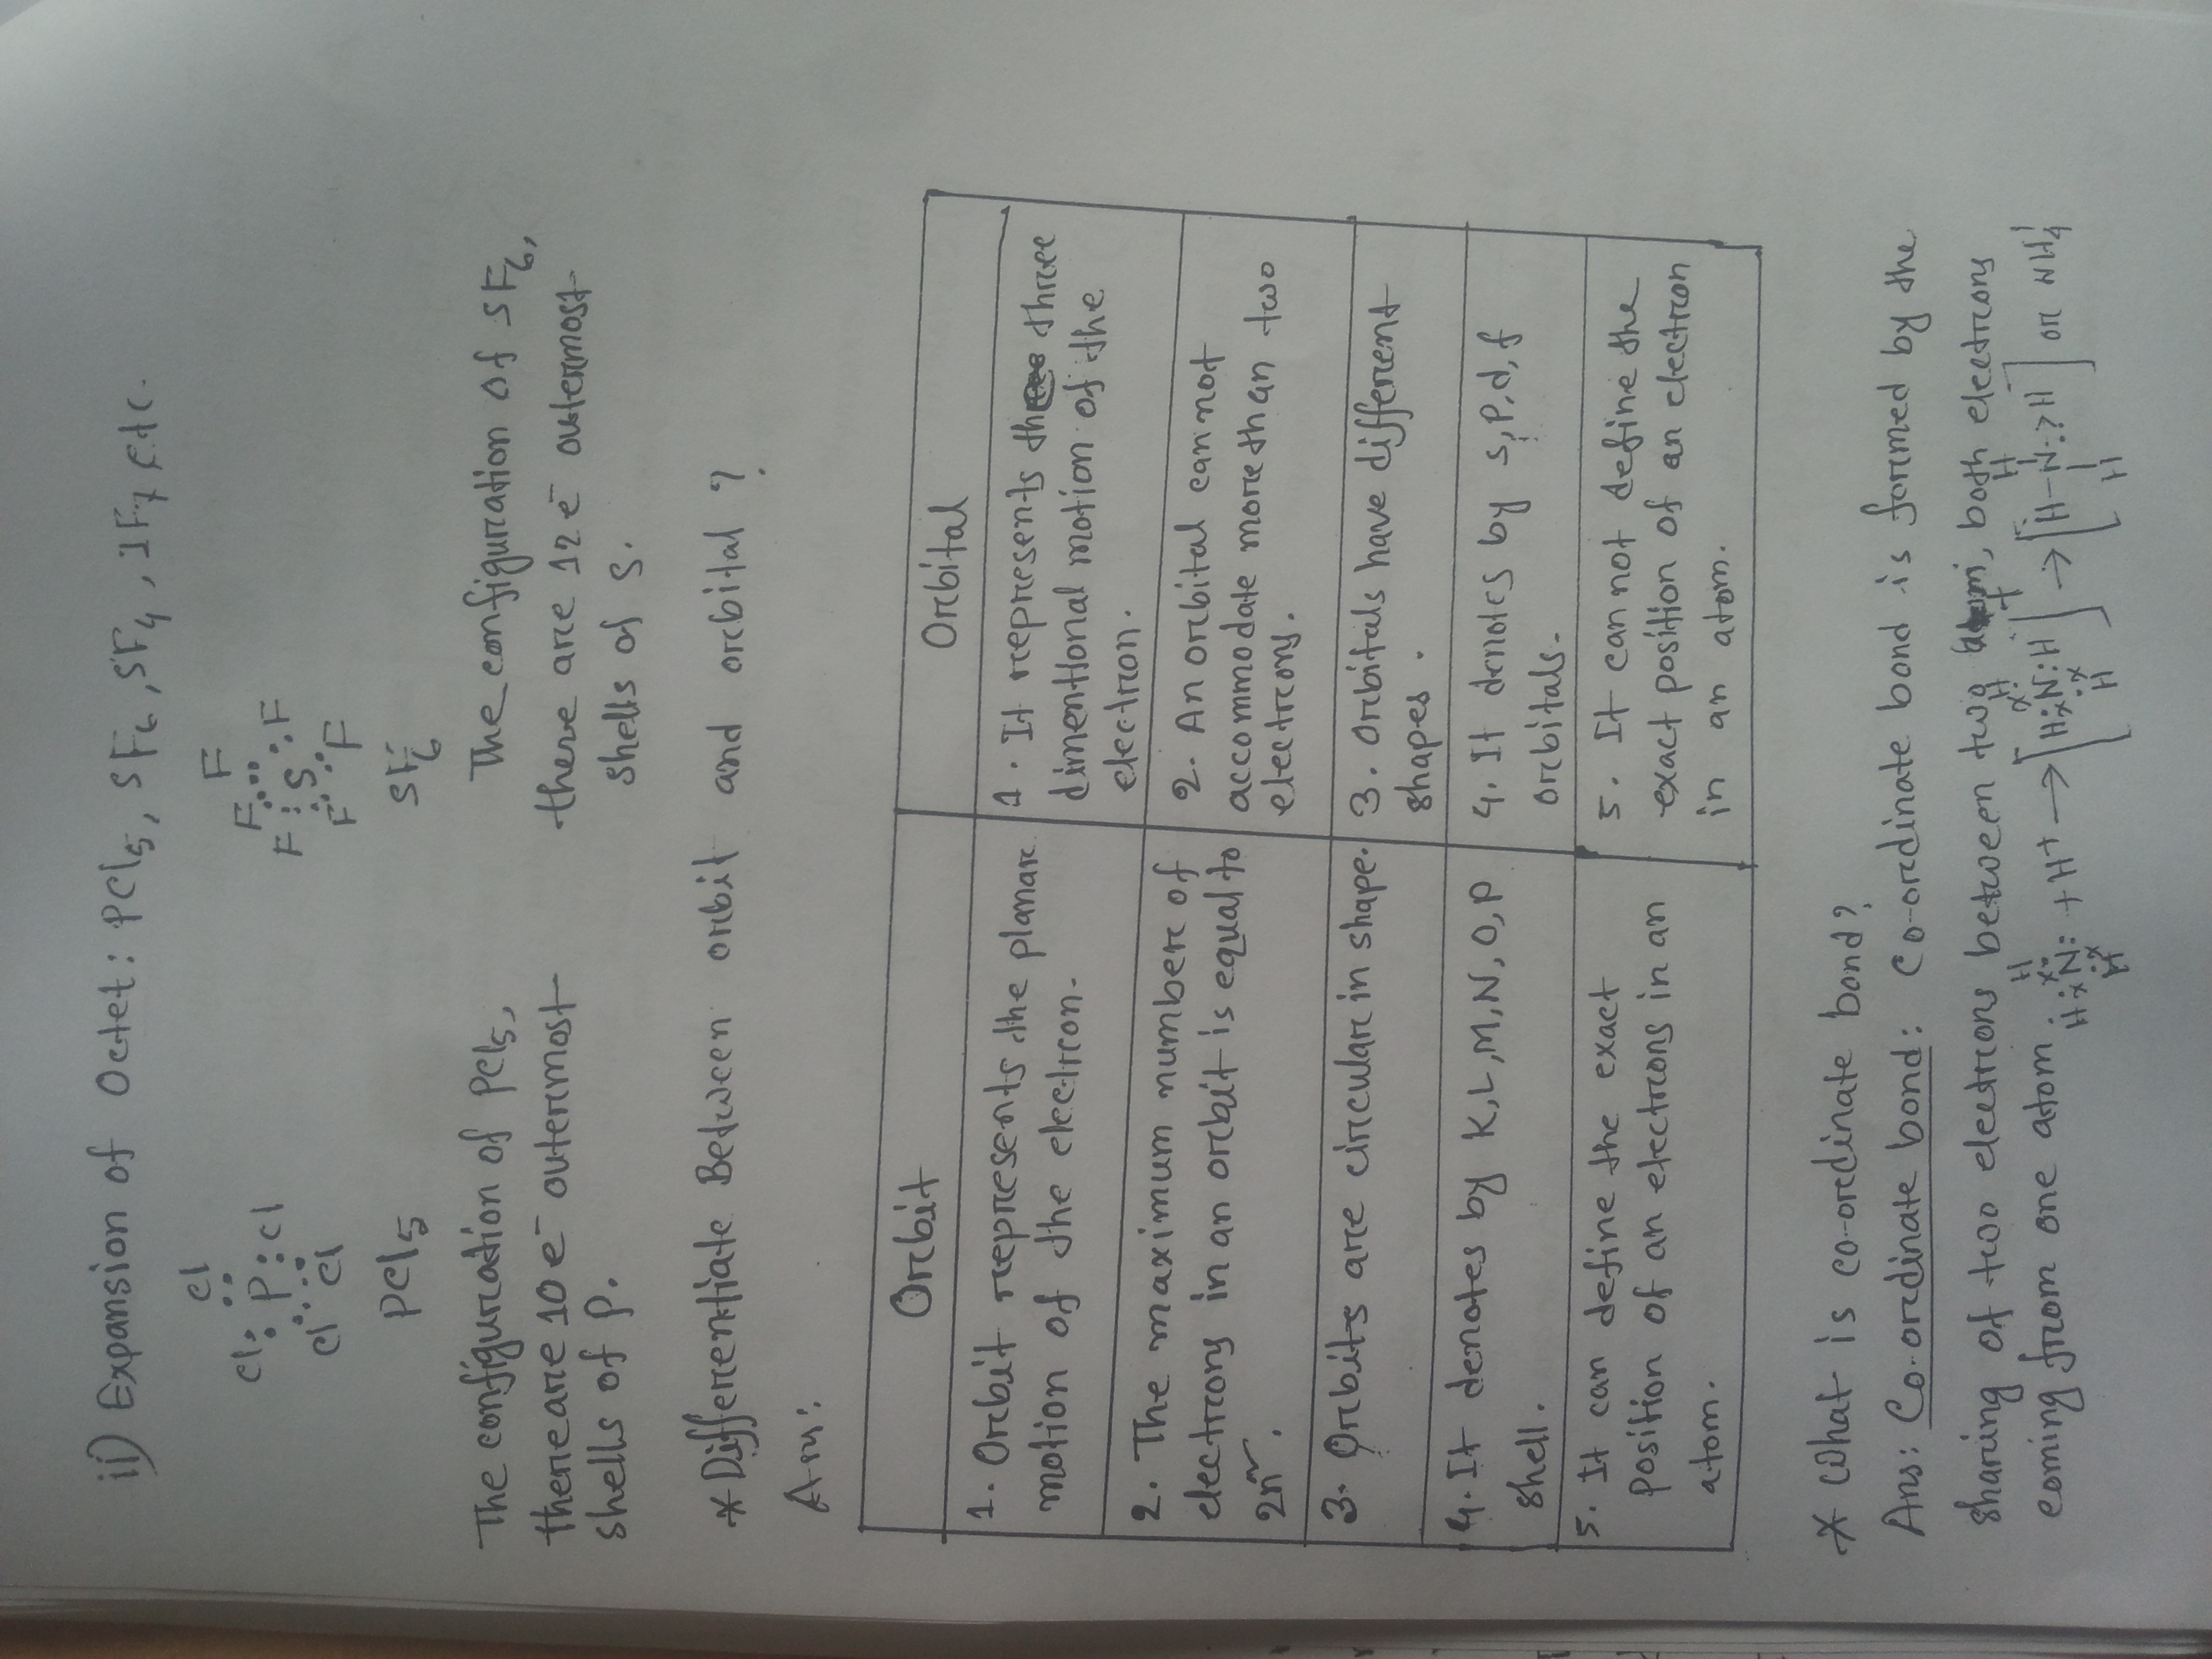 ii) Expansion of Octet: PCl5, SF6, SF4, IF7 etc.
Cl Cl
P : Cl
Cl Cl
PCl5
F F
F : S : F
F F
SF6
The configuration of PCl5,
there are 10 e⁻ outermost
shells of P.
The configuration of SF6,
there are 12 e⁻ outermost
shells of S.
* Differentiate Between orbit and orbital ?
Ans:
Orbit
Orbital
1. Orbit represents the planar
motion of the electron.
1. It represents three
dimentional motion of the
electron.
2. The maximum number of
electrons in an orbit is equal to
2n².
2. An orbital can not
accommodate more than two
electrons.
3. Orbits are circular in shape.
3. Orbitals have different
shapes.
4. It denotes by K, L, M, N, O, P
shell.
4. It denotes by s, p, d, f
orbitals.
5. It can define the exact
position of an electrons in an
atom.
5. It can not define the
exact position of an electron
in an atom.
* What is co-ordinate bond?
Ans: Co-ordinate bond: Co-ordinate bond is formed by the
sharing of two electrons between two atom, both electrons
coming from one atom.
H
H : N : + H⁺ →
H
H
[H : N : H]⁺ →
H
H
[H - N : → H]
H
or NH4